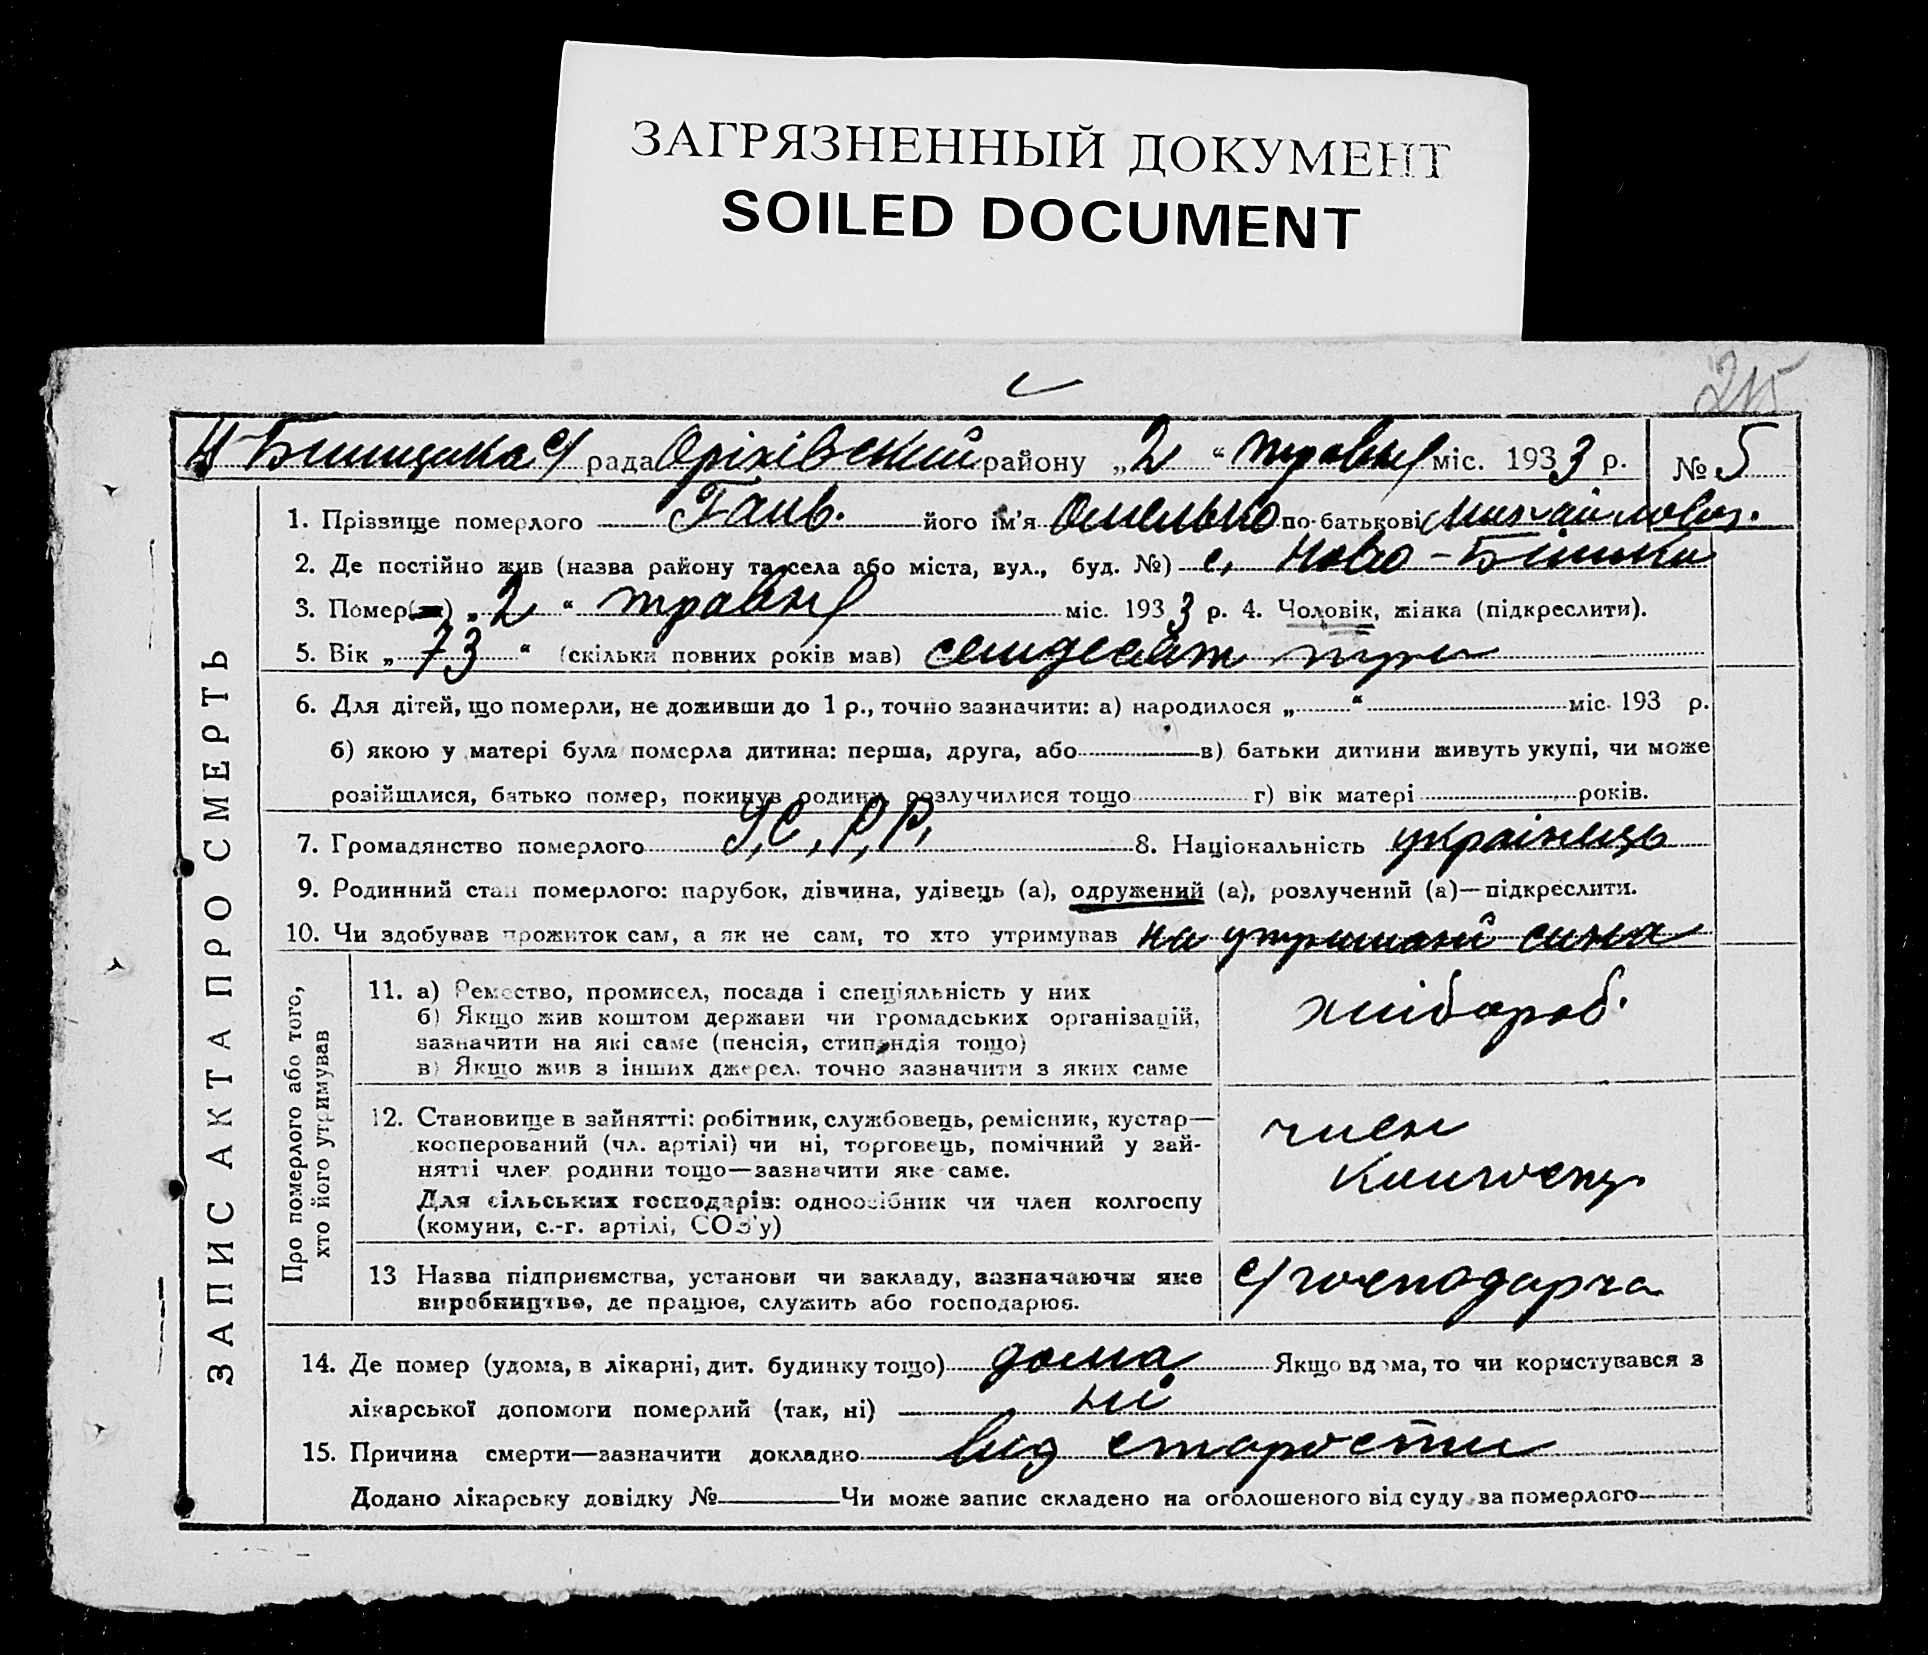 ЗАГРЯЗНЕННЫЙ ДОКУМЕНТ
SOILED DOCUMENT
с/ рада Оріхівский району „2“ травня міс. 1933 р. № 5
1. Прізвище померлого Ганв. його ім'я Омелько по-батькові Михайлович.
2. Де постійно жив (назва району та села або міста, вул., буд. №) с. Ново-
3. Помер „2“ травня міс. 1933 р. 4. Чоловік, жінка (підкреслити).
5. Вік „73“ (скільки повних років мав) семдесят три
6. Для дітей, що померли, не доживши до 1 р., точно зазначити: а) народилося „ “ міс. 193 р.
б) якою у матері була померла дитина: перша, друга, або в) батьки дитини живуть укупі, чи може
розійшлися, батько помер, покинув родину, розлучилися тощо г) вік матері років.
7. Громадянство померлого У.С.Р.Р. 8. Національність українець
9. Родинний стан померлого: парубок, дівчина, удівець (а), одружений (а), розлучений (а)—підкреслити.
10. Чи здобував прожиток сам, а як не сам, то хто утримував на утримані сина
ЗАПИС АКТА ПРО СМЕРТЬ
Про померлого або того,
хто його утримував
11. а) Ремество, промисел, посада і спеціяльність у них
б) Якщо жив коштом держави чи громадських організацій,
зазначити на які саме (пенсія, стипендія тощо)
в) Якщо жив з інших джерел, точно зазначити з яких саме
хлібороб.
12. Становище в зайнятті: робітник, службовець, ремісник, кустар—
косперований (чл. артілі) чи ні, торговець, помічний у зай-
нятті член родини тощо—зазначити яке саме.
Для сільських господарів: одноосібник чи член колгоспу
(комуни, с.-г. артілі, СОЗ'у)
член
колгоспу
13 Назва підприємства, установи чи закладу, зазначаючи яке
виробництво, де працює, служить або господарює.
с/господарча
14. Де помер (удома, в лікарні, дит. будинку тощо) дома Якщо вдома, то чи користувався з
лікарської допомоги померлий (так, ні) ні
15. Причина смерти—зазначити докладно від старости
Додано лікарську довідку № Чи може запис складено на оголошеного від суду за померлого